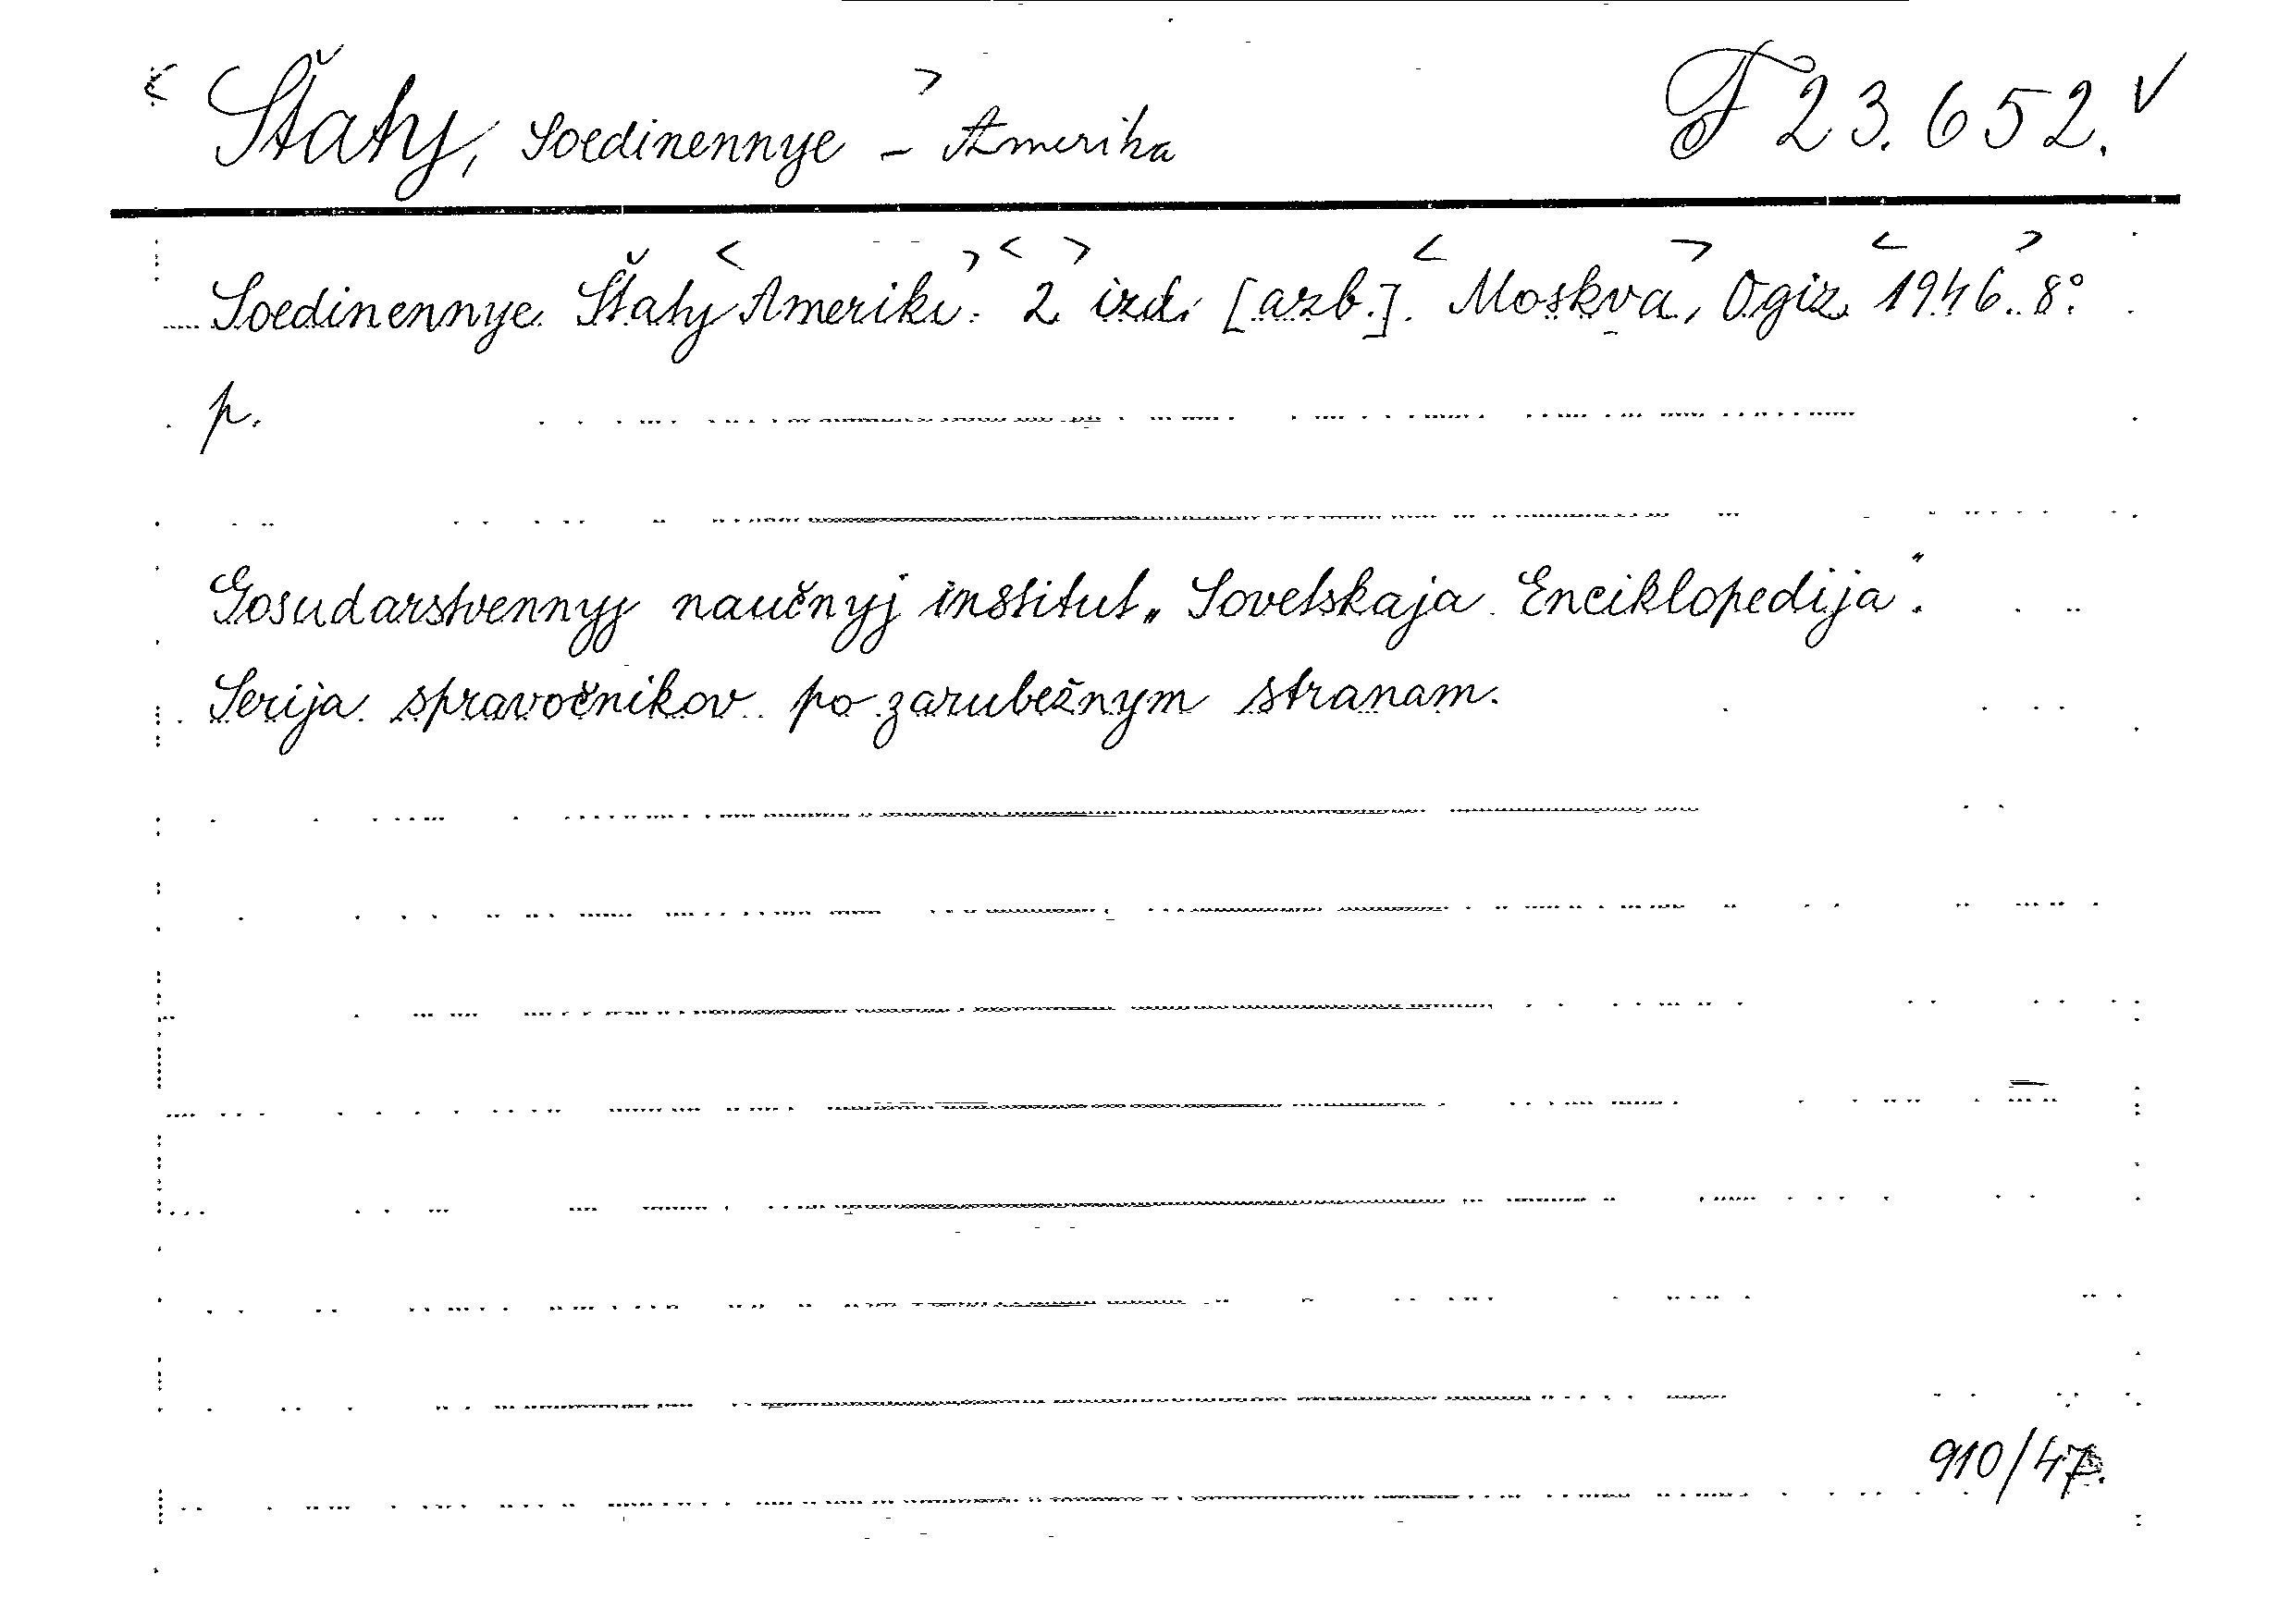 < Štaty, Soedinennye > – Amerika F 23.652. √
Soedinennye Štaty < Ameriki. > < 2 > izd. [azb.]. < Moskva, > Ogiz < 1946. > 8°.
p.
Gosudarstvennyj naučnyj institut „Sovetskaja Enciklopedija".
Serija spravočnikov po zarubežnym stranam.
910/47.